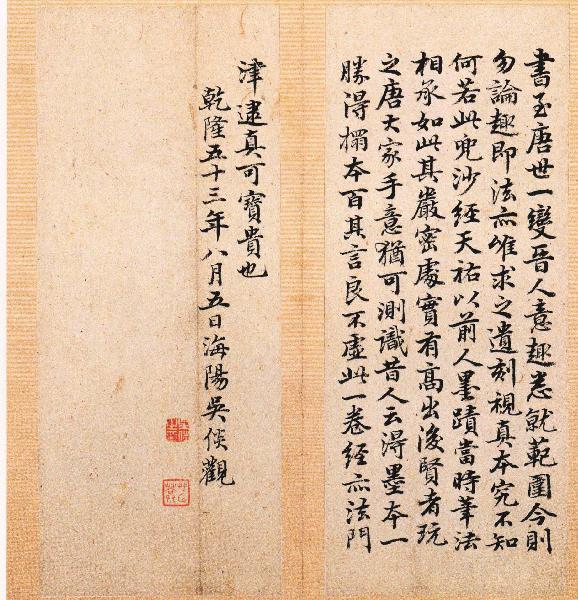 書至唐世一變晉人意趣悉就範圍今則
勿論趣即法亦唯求之遺刻視真本究不知
何若此兜沙經天祐以前人墨蹟當時筆法
相承如此其嚴密處實有高出後賢者玩
之唐大家手意猶可測識昔人云得墨本一
勝得搨本百其言良不虛此一卷經亦法門
津逮真可寶貴也
乾隆五十三年八月五日海陽吳俟觀